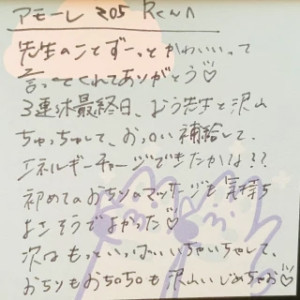 アモーレ 205 Rена
先生のことずーっとかわいいって
言ってくれてありがとう♡
3連休最終日、おう先生と沢山
ちゅっちゅして、おっぱい補給して、
エネルギーチャージできたかな??
初めてのおちりのマッサージも気持ち
よさそうでよかった♡
次はもっといっぱいいちゃいちゃして、
おちりもおちοちも沢山いじめちゃお♡